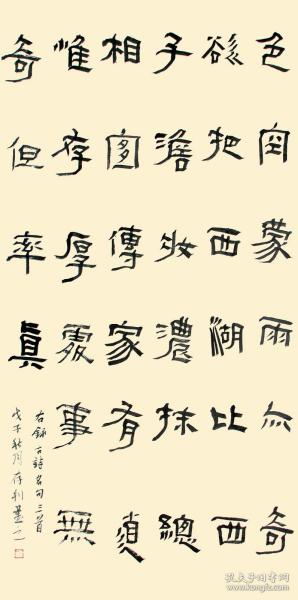 色空蒙雨亦奇
欲把西湖比西
子澹妝濃抹總
相宜傳家有道
惟存厚處事無
奇但率真
右錄古詩名句三首
戊子秋月存利書之
孔夫子旧书网